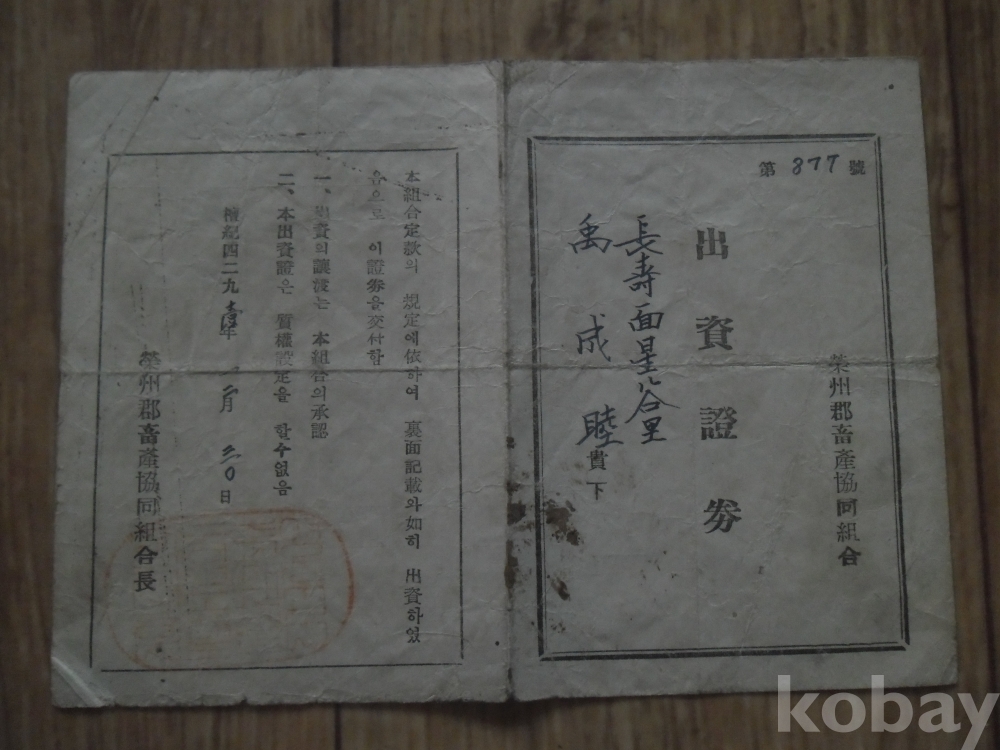 第 377 號
出資證券
榮州郡畜產協同組合
長壽面星谷里
禹成睦 貴下
本組合定款의 規定에依하여 裏面記載와如히 出資하였
음으로 이證券을交付함
一、出資의讓渡는 本組合의承認
二、本出資證은 質權設定을 할수없음
檀紀四二九 年 二月 二0日
榮州郡畜產協同組合長
kobay